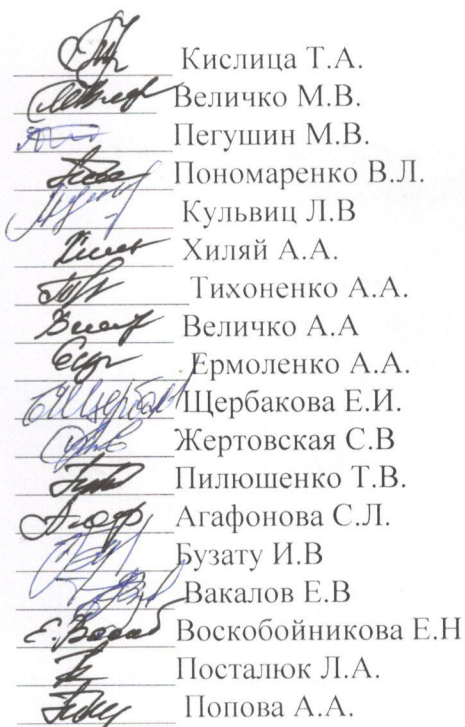 Кислица Т.А.
Величко М.В.
Пегушин М.В.
Пономаренко В.Л.
Кульвиц Л.В
Хиляй А.А.
Тихоненко А.А.
Величко А.А
Ермоленко А.А.
Щербакова Е.И.
Жертовская С.В
Пилюшенко Т.В.
Агафонова С.Л.
Бузату И.В
Вакалов Е.В
Воскобойникова Е.Н
Посталюк Л.А.
Попова А.А.